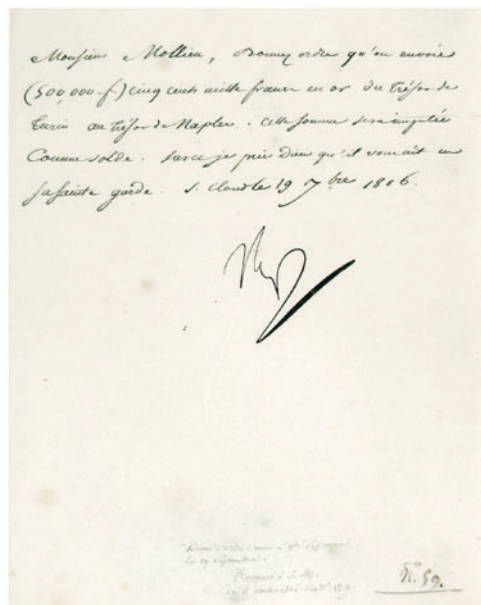 Monsieur Mollien, Donnez ordre qu'on envoie
(500,000 f.) cinq cents mille francs en or du trésor de
Turin au trésor de Naples. Cette somme sera employée
Comme solde. Sur ce je prie Dieu qu'il vous ait en
sa sainte garde. S. Cloud le 19 7bre 1806.
Nap
N.º 59.